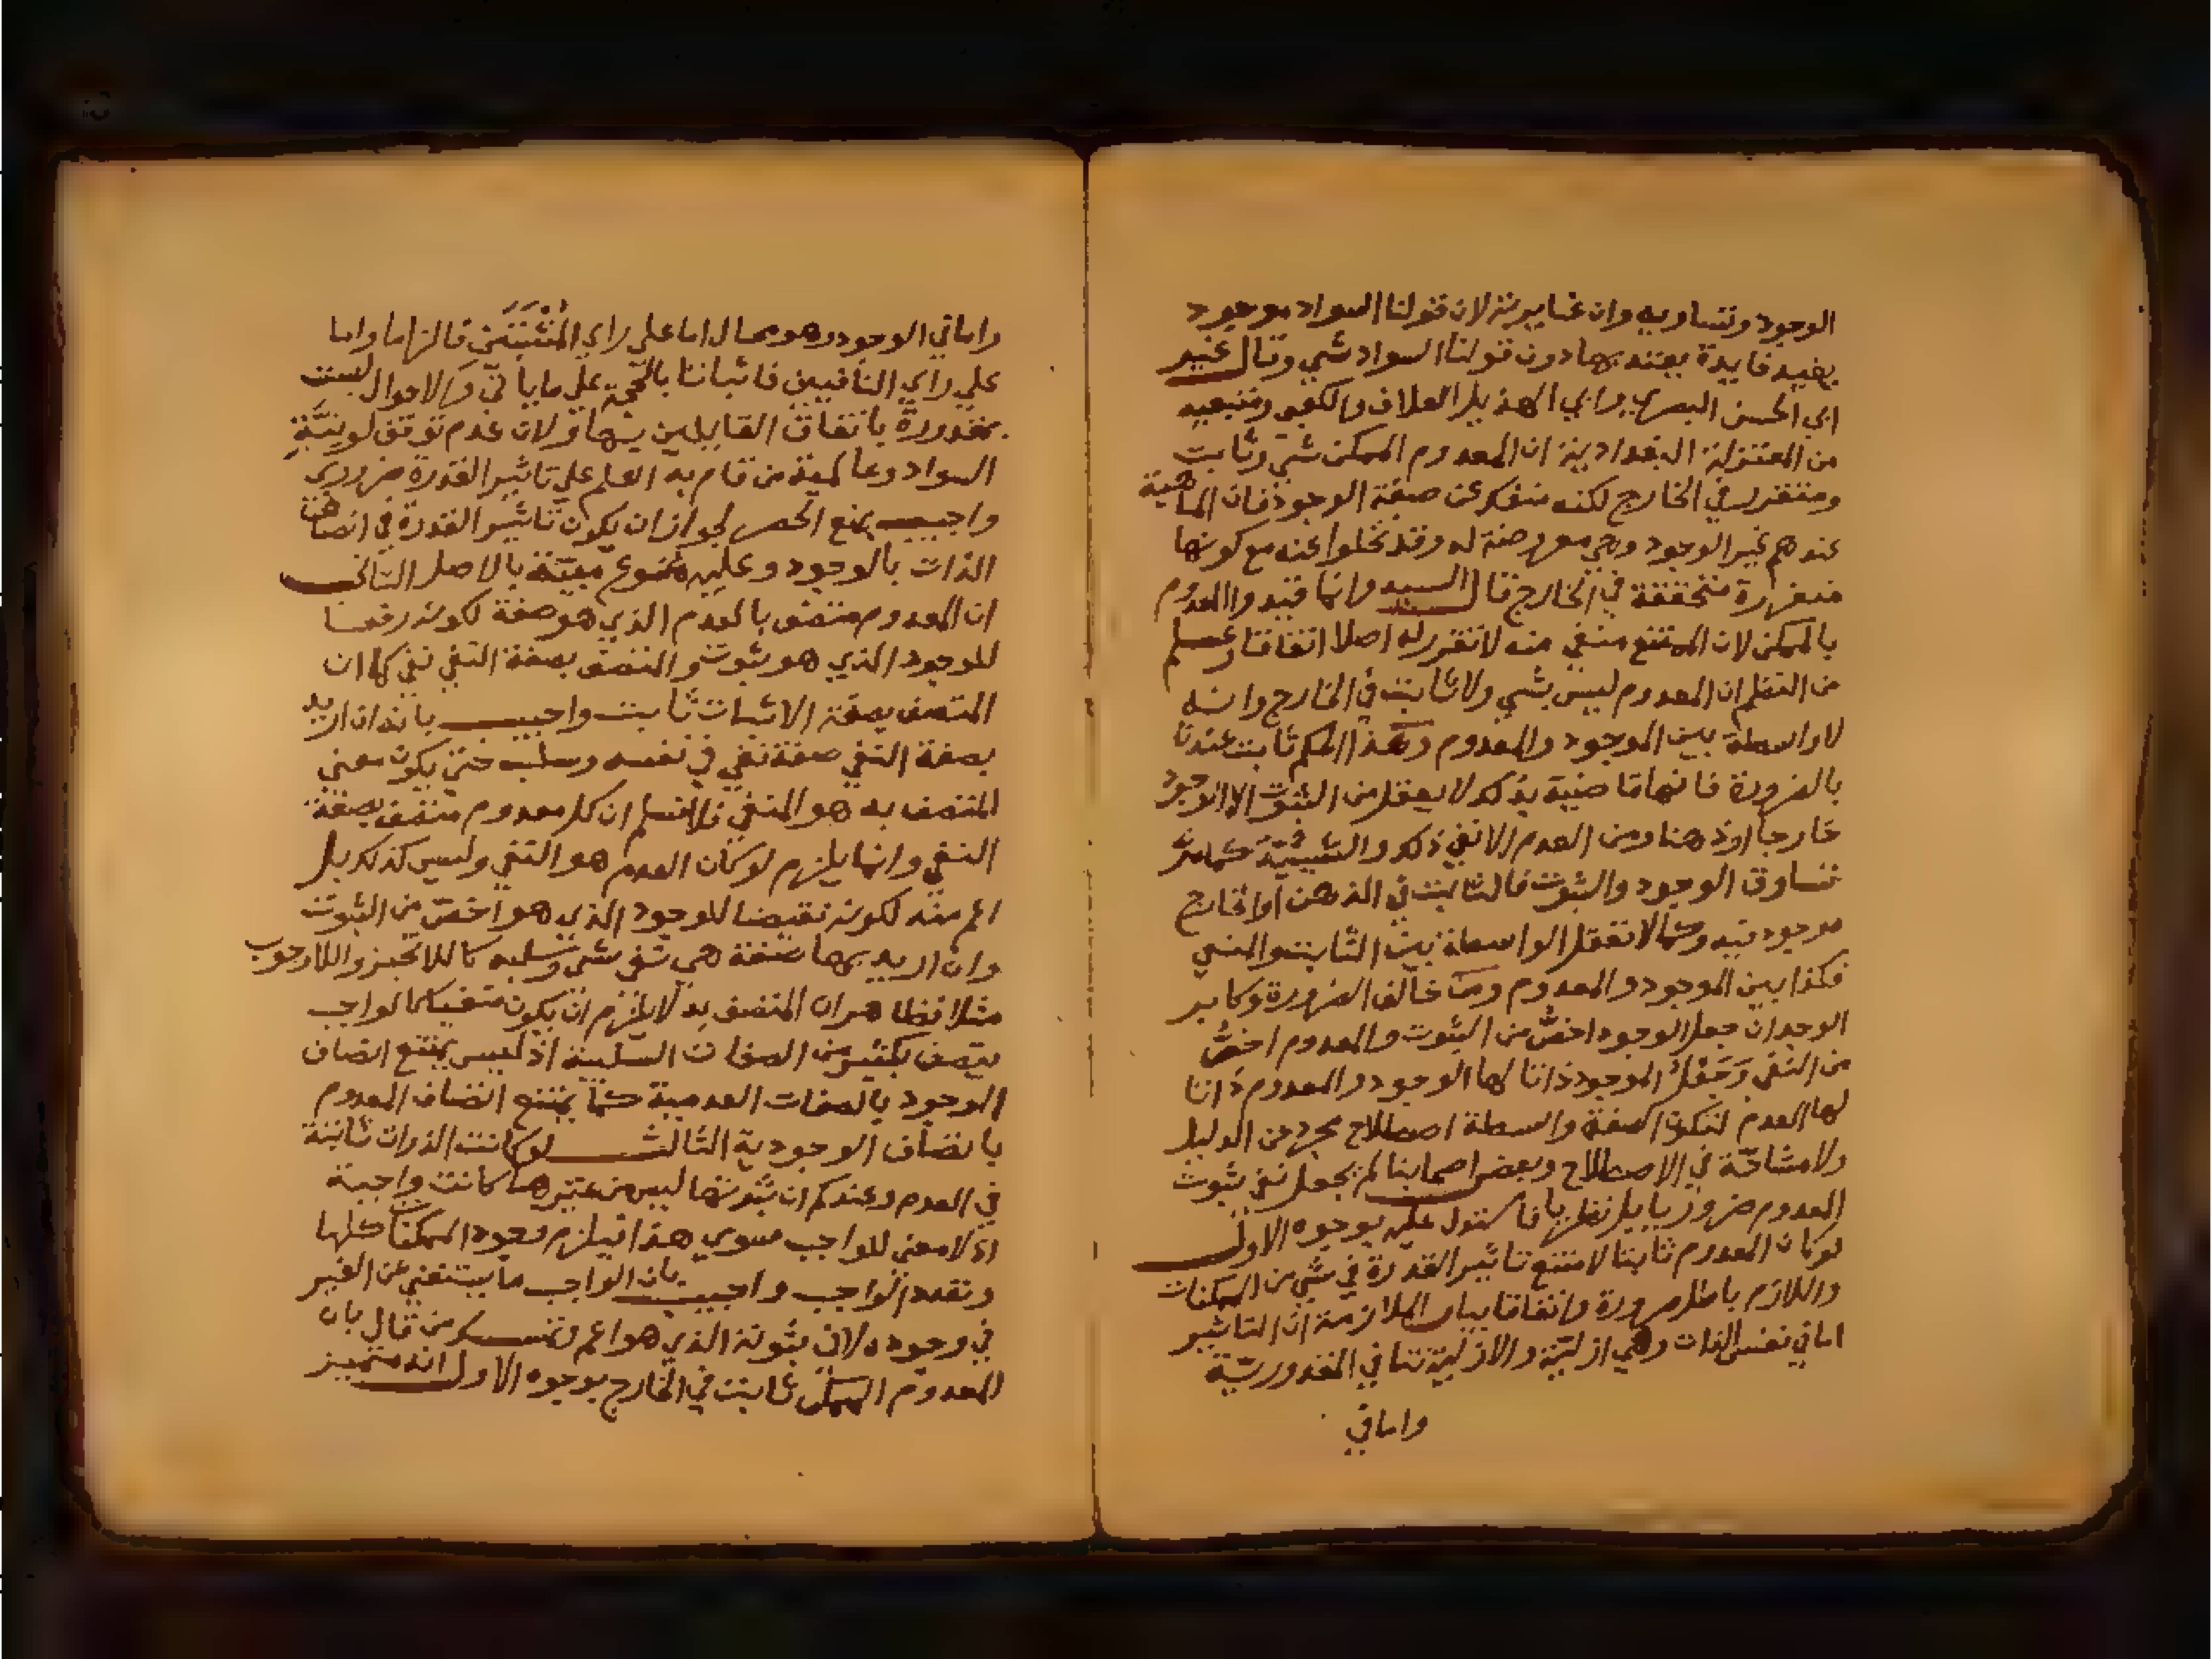 الوجود وتساويه وان غايرته لان قولنا السواد موجود
يفيد فايدة يعتد بها دون قولنا السواد شي وقال غير
ابي الحسن البصري وابي الهذيل العلاف والكعبي ومتبعيه
من المعتزلة البغدادية ان المعدوم الممكن شي وثابت
ومتقرر في الخارج لكنه منفك عن صفة الوجود فان الماهية
عندهم غير الوجود وهي معروضة له وقد تخلوا عنه مع كونها
متقررة متحققة في الخارج قال السيد وانما قيدوا المعدوم
بالممكن لان الممتنع منفي منه لا تقرر له اصلا اتفاقا وعلم
من النظم ان المعدوم ليس بشي ولا ثابت في الخارج وانه
لا واسطة بين الموجود والمعدوم وهذا الحكم ثابت عندنا
بالضرورة فانها قاضية بذلك لا يعقل من الثبوت الا الوجود
خارجا او ذهنا ومن العدم الا نفي ذلك والشيئية كما مر
تساوق الوجود والثبوت فالثابت في الذهن او الخارج
موجود فيه وكما لا تعقل الواسطة بين الثابت والمنفي
فكذا بين الموجود والمعدوم ومن خالف الضرورة وكابر
الوجدان جعل الوجود اخص من الثبوت والمعدوم اخص
من النفي وجعل الموجود ذاتا لها الوجود والمعدوم ذاتا
لها العدم لتكون الصفة واسطة اصطلاح مجرد عن الدليل
ولا مشاحة في الاصطلاح وبعض اصحابنا لم يجعل نفي ثبوت
المعدوم ضروريا بل نظريا فاستدل عليه بوجوه الاول
لو كان المعدوم ثابتا لامتنع تاثير القدرة في شي من الممكنات
واللازم باطل ضرورة واتفاقا بيان الملازمة ان التاثير
اما في نفس الذات وهي ازلية والازلية تنافي المقدورية
واما في
واما في الوجود وهو محال اما على راي المثبتين فالزاما واما
علي راي النافيين فاثباتا بالحجة علي ما ياتي والاحوال ليست
بمقدورة باتفاق القايلين بها ولان عدم توقف لونية
السواد وعالمية من قام به العلم علي تاثير القدرة ضروري
واجيب بمنع الحصر لجواز ان يكون تاثير القدرة في اتصاف
الذات بالوجود وعليه ممنوع مبينة بالاصل الثاني
ان المعدوم متصف بالعدم الذي هو صفة لكونه رفعا
للوجود الذي هو ثبوت والمتصف بصفة النفي نفي كما ان
المتصف بصفة الاثبات ثابت واجيب بانه ان اريد
بصفة النفي صفة نفي في نفسه وسلب حتي يكون معني
المتصف به هو المنفي فلا نسلم ان كل معدوم متصف بصفة
النفي وانما يلزم لو كان العدم هو النفي وليس كذلك بل
اعم منه لكونه نقيضا للوجود الذي هو اخص من الثبوت
وان اريد بها صفة هي نفي شي وسلبه كاللاتحيز واللاوجوب
مثلا فظاهر ان المتصف به لا يلزم ان يكون منفيا كالواجب
يتصف بكثير من الصفات السلبية اذ ليس يمتنع اتصاف
الوجود بالصفات العدمية كما يمتنع اتصاف المعدوم
باتصاف الوجودية الثالث لو كانت الذوات ثابتة
في العدم وعندكم ان ثبوتها ليس من غيرها كانت واجبة
اذ لا معني للواجب سوي هذا فيلزم وجود الممكنات كلها
وتعدد الواجب واجيب بان الواجب ما يستغني عن الغير
في وجوده لا في ثبوته الذي هو اعم وتمسك من قال بان
المعدوم الممكن ثابت في الخارج بوجوه الاول انه متميز